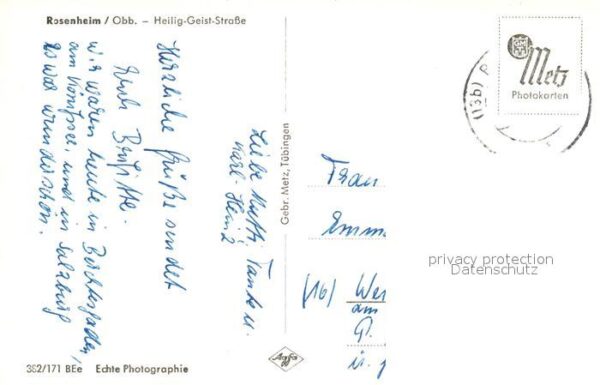 Rosenheim / Obb. – Heilig-Geist-Straße
Herzliche Grüße sendet
Eure Brigitte.
Wir waren heute in Berchtesgaden,
am Königssee und in Salzburg
Es war wunderschön.
Liebe Mutti, Tante u.
Karl-Heinz
Gebr. Metz, Tübingen
Metz
Photokarten
(13b)
Frau
Emm
(16) We
am
privacy protection
Datenschutz
382/171 BEe Echte Photographie
Agfa